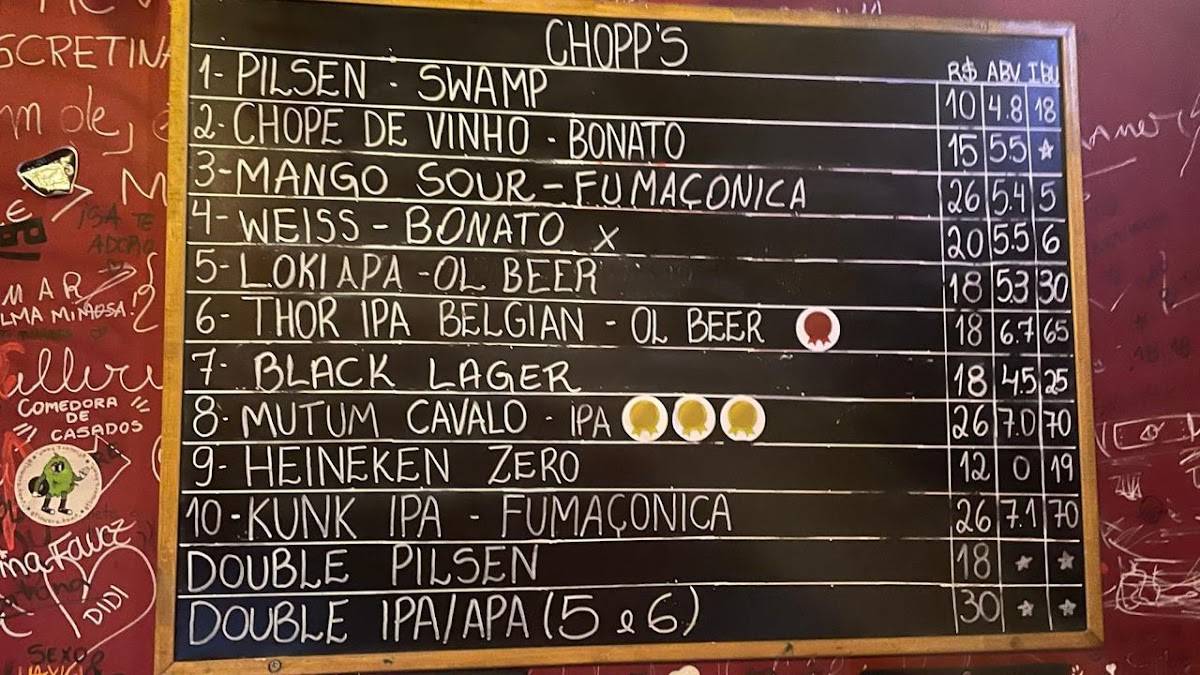 CHOPP'S
R$ ABV IBU
1- PILSEN - SWAMP 10 4.8 18
2- CHOPE DE VINHO - BONATO 15 55
3- MANGO SOUR - FUMAÇONICA 26 5.4 5
4- WEISS - BONATO X 20 5.5 6
5- LOKI APA - OL BEER 18 53 30
6- THOR IPA BELGIAN - OL BEER 18 6.7 65
7- BLACK LAGER 18 4.5 25
8- MUTUM CAVALO - IPA 26 7.0 70
9- HEINEKEN ZERO 12 0 19
10- KUNK IPA - FUMAÇONICA 26 7.1 70
DOUBLE PILSEN 18
DOUBLE IPA/APA (5 e 6) 30
SCRETINA
ole,
M
ISA TE
ADORO
MAR
LMA MIMOSA!
COMEDORA
DE
CASADOS
DIDI
SEXO